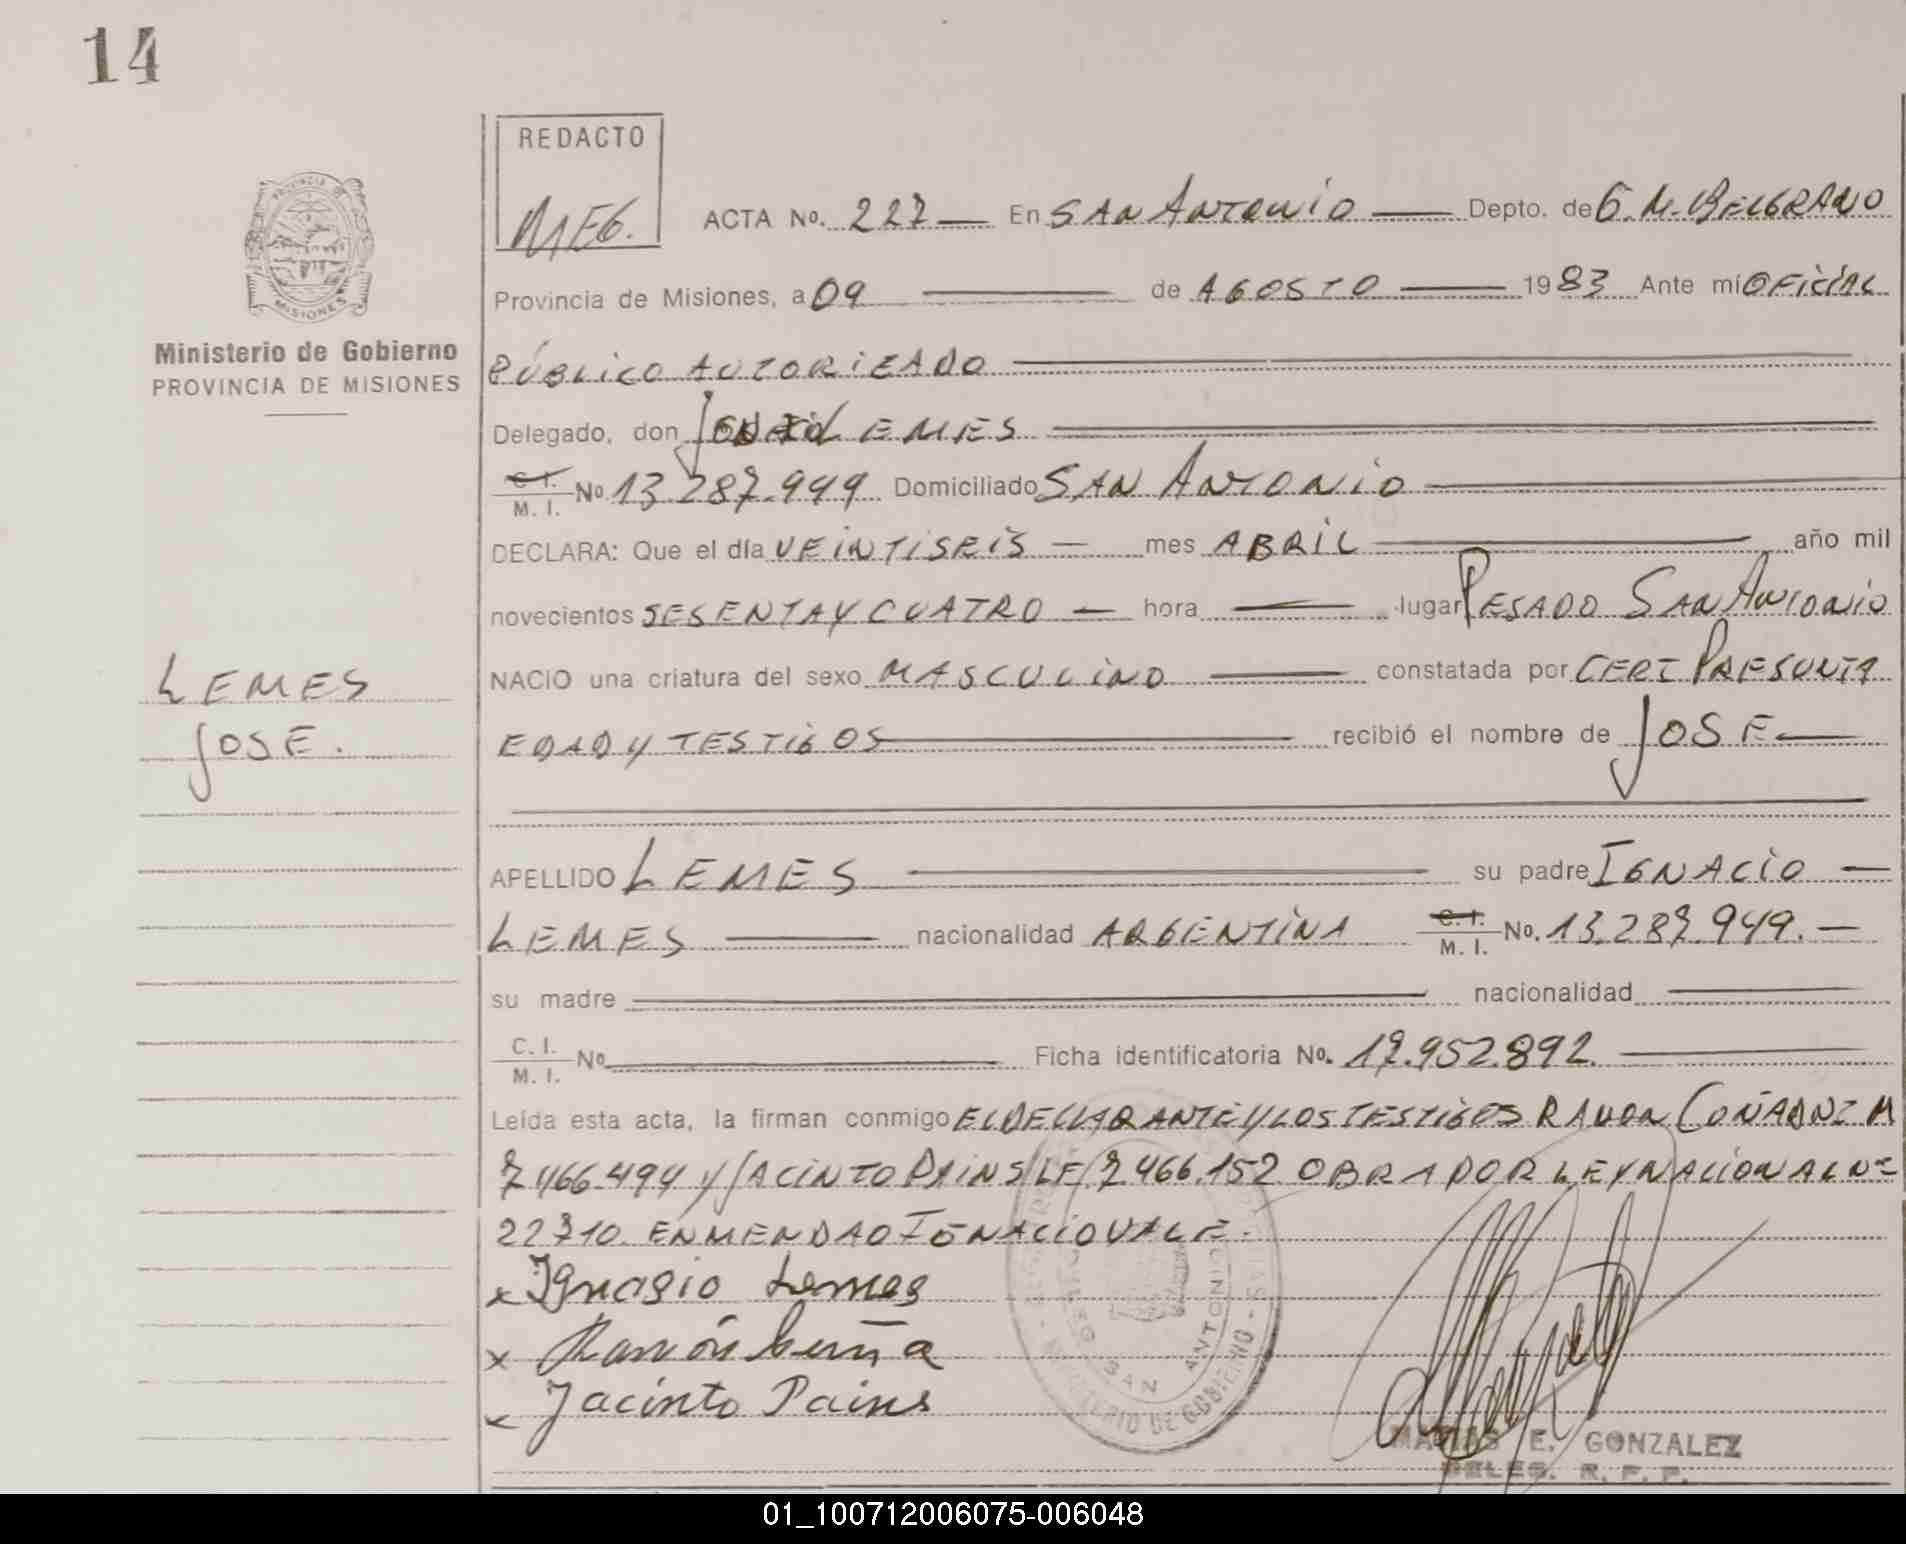 14
REDACTO
MEG.
PROVINCIA DE
MISIONES
Ministerio de Gobierno
PROVINCIA DE MISIONES
ACTA No. 227 En SAN ANTONIO Depto. de G. M. BELGRANO
Provincia de Misiones, a 09 de AGOSTO 1983 Ante mí OFICIAL
PÚBLICO AUTORIZADO
Delegado, don LEMES
C. I. / M. I. No 13.287.949 Domiciliado SAN ANTONIO
DECLARA: Que el día VEINTISEIS mes ABRIL año mil
novecientos SESENTA Y CUATRO hora lugar PESADO SAN ANTONIO
LEMES
JOSE.
NACIO una criatura del sexo MASCULINO constatada por CERT PRESUNTA
EDAD Y TESTIGOS recibió el nombre de JOSE
APELLIDO LEMES su padre IGNACIO
LEMES nacionalidad ARGENTINA C. I. / M. I. No. 13.287.949.
su madre nacionalidad
C. I. / M. I. No Ficha identificatoria No. 17.952.892.
Leída esta acta, la firman conmigo EL DECLARANTE Y LOS TESTIGOS RAMON M
7.466.494 Y JACINTO PAINS LE 7.466.152 OBRADO POR LEY NACIONAL Nº
22710. ENMENDAO IGNACIO VALE.
x Ignasio Lemes
x Ramón
x Jacinto Pains
SAN ANTONIO
MINISTERIO DE GOBIERNO
MATIAS E. GONZALEZ
DELEG. R. P. P.
01_100712006075-006048